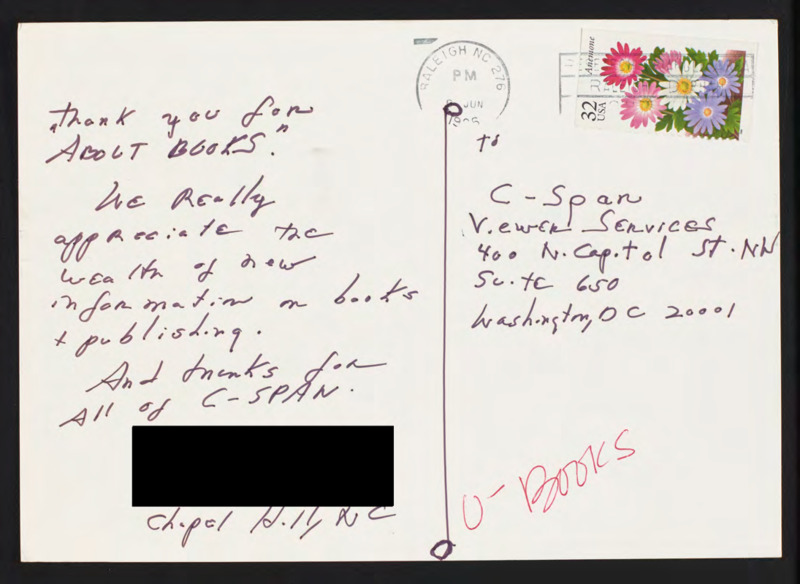 Thank you for
"ABOUT BOOKS."
We Really
appreciate the
wealth of new
information on books
+ publishing.
And thanks for
All of C-SPAN.
Chapel Hill, NC
RALEIGH NC 276
PM
JUN
Anemone
32
USA
to
C-Span
Viewer Services
400 N. Capitol St. NW
Suite 650
Washington, DC 20001
BOOKS